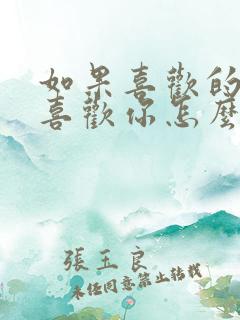 如果喜歡的
喜歡你怎麼
張玉良
未经同意禁止转载